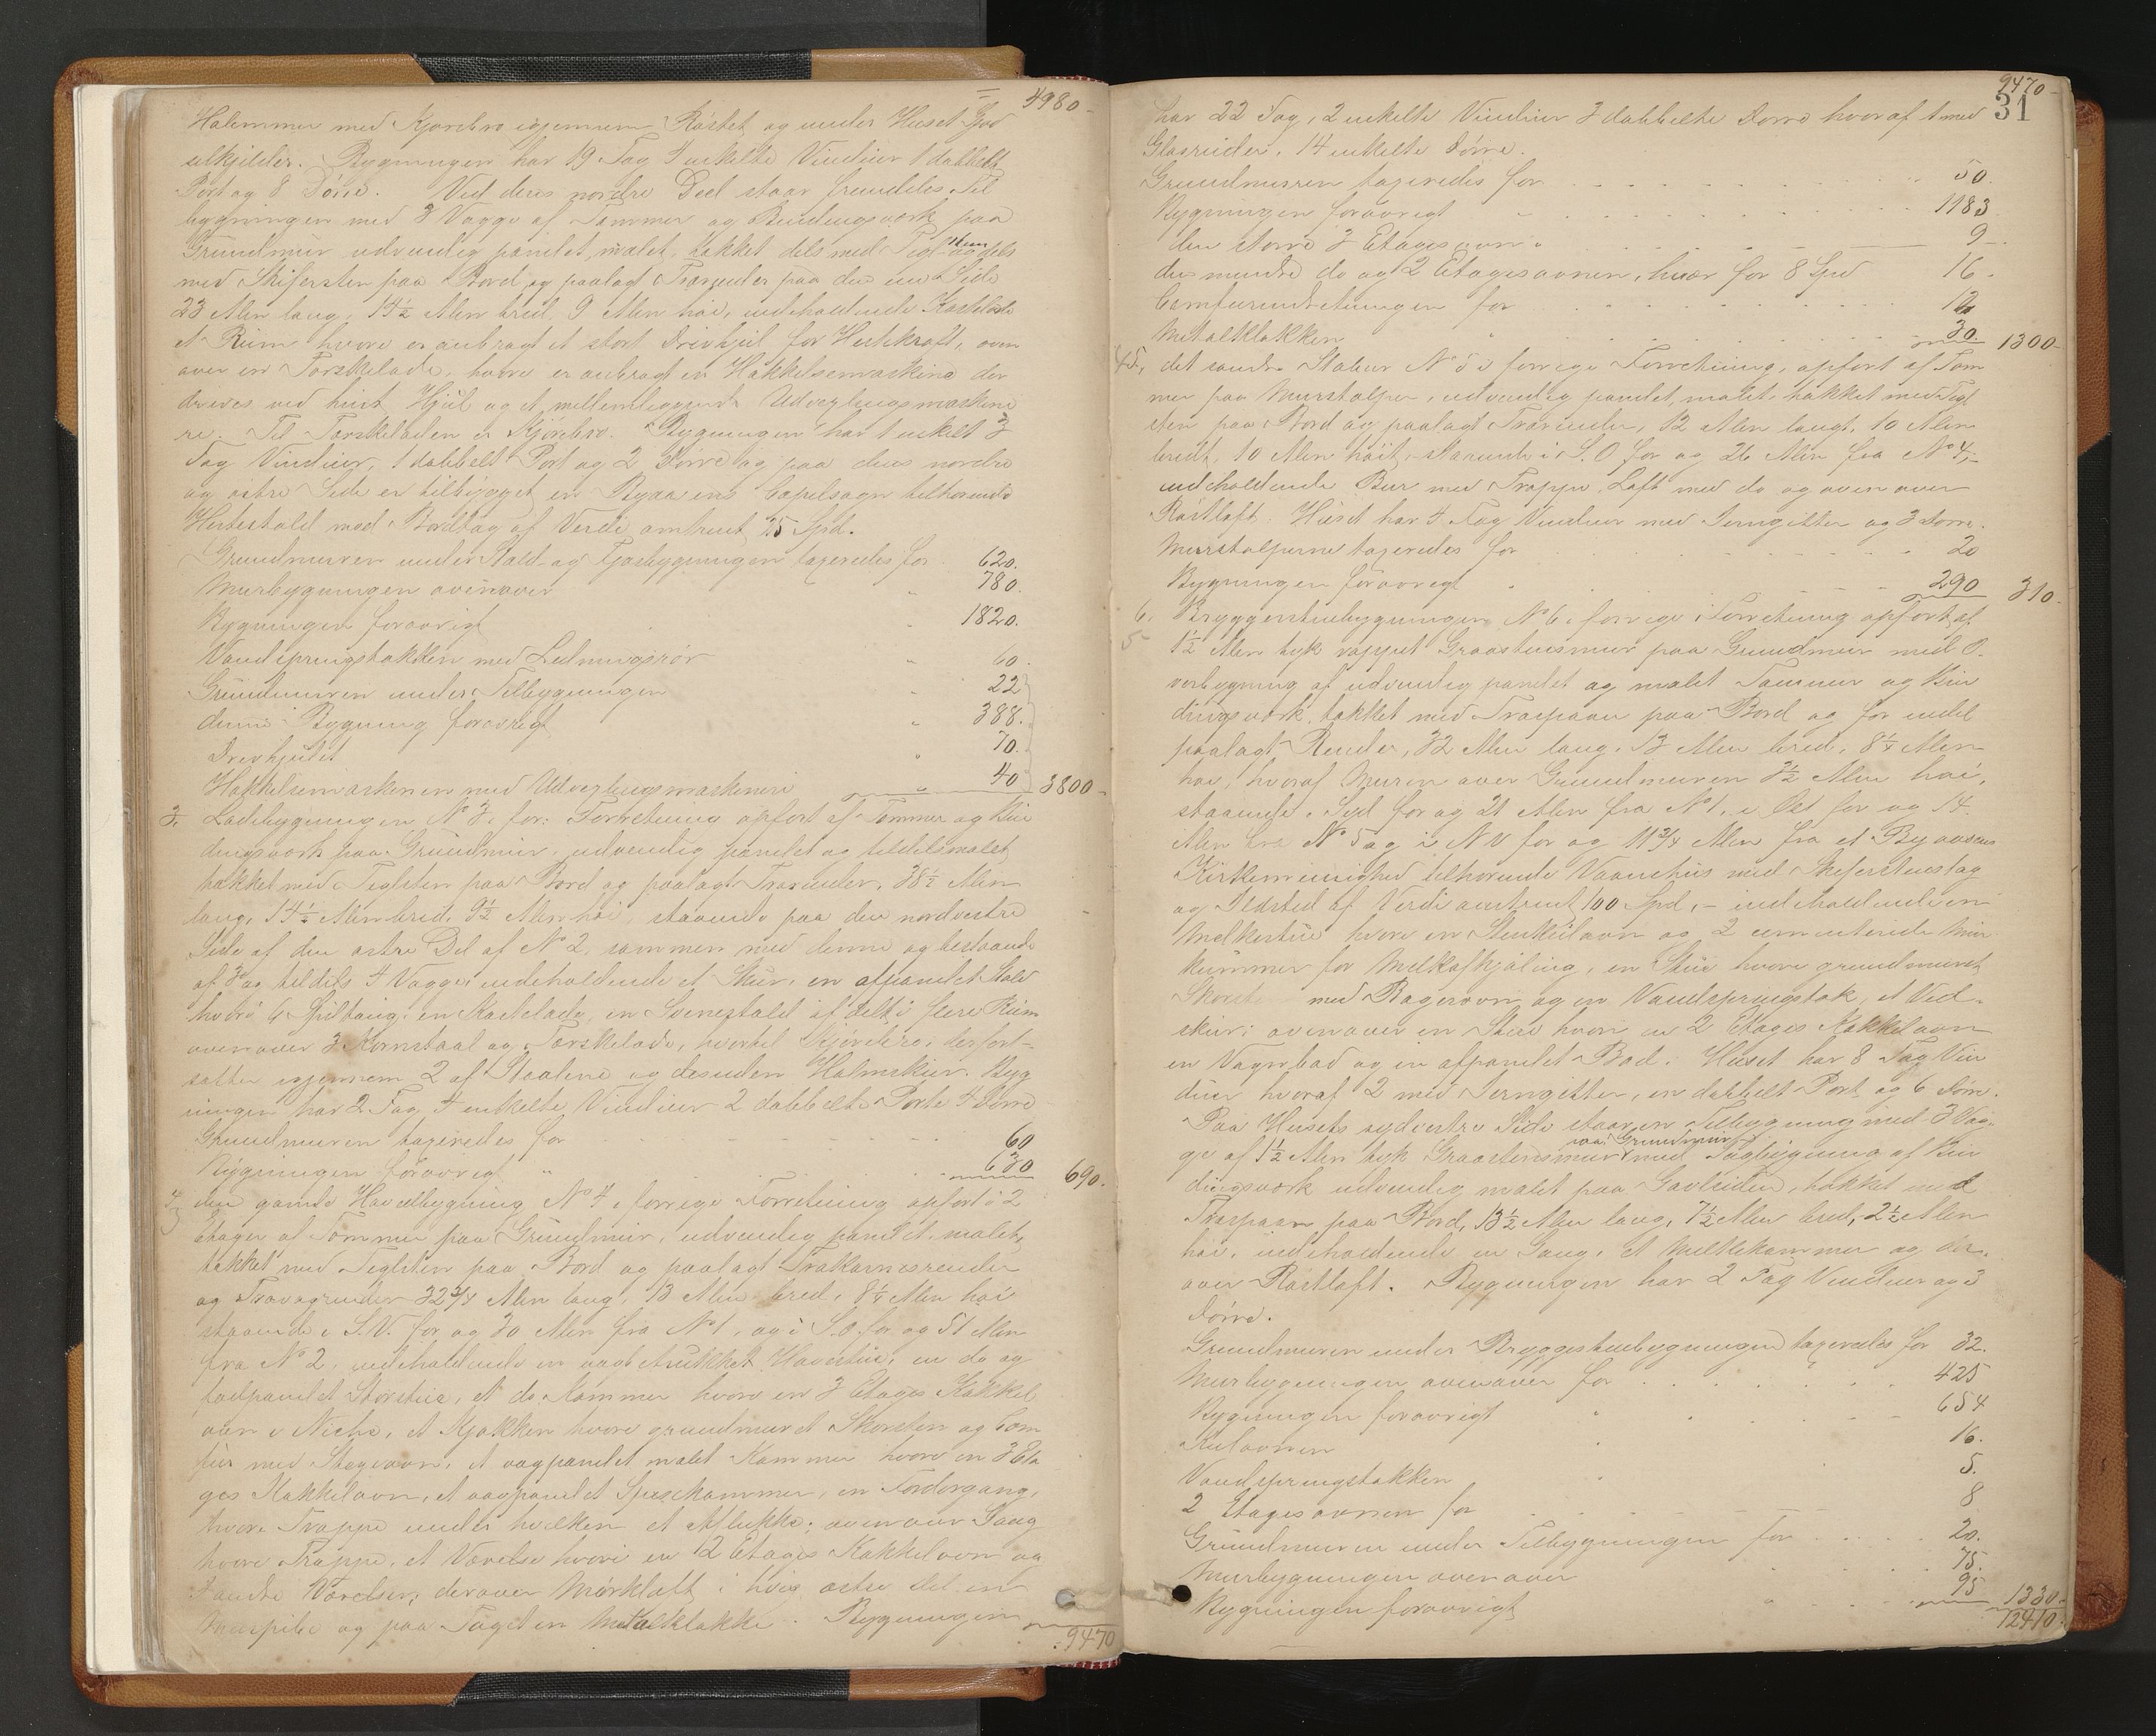 4980-
Halemmer med Kjørebro igjennem Røstet og under Huset Gjød
selkjelder. Bygningen har 19 Fag 4 enkelte Vinduer 1 dobbelt
Port og 8 Dörre. Ved dens nordre Deel staar fremdeles Til
bygningen med 3 Vægge af Tømmer og Bindingsværk paa
Grundmur udvendig panelet, malet, tækket dels med Tegl- sten og dels
med Skifersten paa Bord og paalagt Trærender paa den ene Side
23 Alen lang, 14½ Alen bred, 9 Alen høi, indeholdende
et Rum hvori er anbragt et stort Drivhjul for Hestekraft, oven
over en Tærskelade, hvori er anbragt en Hakkelsemaskine der
drives ved hint Hjul og et mellemliggende Udvexlingsmaskine
ri. Til Tærskeladen er Kjørebro. Bygningen har 1 enkelt 3
Fag Vinduer, 1 dobbelt Port og 2 Dörre og paa dens nordre
og østre Side er tilbygget en Byaasens Capelsogn tilhørende
Hestestald med Bordtag af Verdi omtrent 25 Spd.
Grundmuren under Stald- og Fjøsbygningen taxeredes for 620.
Murbygningen ovenover " 780.
Bygningen forøvrigt " 1820.
Vandspringstokken med Ledningsrör " 60.
Grundmuren under Tilbygningen " 22
denne Bygning forøvrigt " 388.
Drivhjulet " 70.
Hakkelsemaskinen med Udvexlingsmaskineri " 40 3800-
3. Ladebygningen No 3 i for: Forretning opført af Tømmer og Bin
dingsværk paa Grundmur, udvendig panelet og tildels malet
tækket med Teglsten paa Bord og paalagt Trærender, 38½ Alen
lang, 14½ Alen bred, 9½ Alen høi, staaende paa den nordvestre
Side af den østre Del af No 2, sammen med denne og bestaaende
af 3 og tildels 4 Vægge, indeholdende et Skur, en afpanelet Stald
hvori 6 Spiltoug, en Kastelade, en Svinestald afdelt i flere Rum
ovenover 3 Kornstaal og Tærskelade, hvortil Kjørebro, der fort-
sætter igjennem 2 af Staalene og desuden Halmskur. Byg
ningen har 2 Fag 4 enkelte Vinduer 2 dobbelte Porte 4 Dörre
Grundmuren taxeredes for 60
Bygningen forøvrigt " 630 690.
4. den gamle Hovedbygning No 4 i forrige Forretning opført i 2
Etager af Tømmer paa Grundmur, udvendig panelet, malet,
tækket med Teglsten paa Bord og paalagt Trækarnisrender
og 32¾ Alen lang, 13 Alen bred, 8¼ Alen høi
staaende i S.V. for og 30 Alen fra No 1, og i S.O. for og 51 Alen
fra No 2, indeholdende en betrukket Havestue, en do og
Storstue, et do Kammer hvori en 3 Etages Kakkel
ovn i Niche, et Kjøkken hvori grundmuret Skorsten og Com
für med Stegeovn, et vægpanelet malet Kammer hvori en 3 Eta
ges Kakkelovn, et vægpanelet Spisekammer, en Fordørgang,
hvori Trappe under hvilken et Aflukke; ovenover Gang
hvori Trappe, et Værelse hvori en 2 Etages Kakkelovn og
4 andre Værelser; derover Mørkloft i hvis østre Del en
Murpibe og paa Taget en Metalklokke. Bygningen
9470
9470-
31
har 22 Fag, 2 enkelte Vinduer 3 dobbelte Dörre hvoraf 1 med
Glasruder, 14 enkelte Dörre.
Grundmuren taxeredes for 50.
Bygningen forøvrigt " 1183
den større 3 Etagesovn " 9-.
den mindre do og 2 Etagesovnen, hver for 8 Spd 16-
Comfurindretningen for 12
Metalklokken " 30. 1300-
5, det søndre Stabur No 5 i forrige Forretning, opført af Tøm
mer paa Murstolper, udvendig panelet, malet, tækket med Tegl
sten paa Bord og paalagt Trærender, 12 Alen langt, 10 Alen
bredt, 10 Alen höit, staaende i S.O. for og 26 Alen fra No 4,
indeholdende Bur med Trappe, Loft med do og ovenover
Røstloft. Huset har 4 Fag Vinduer med Jerngitter og 3 Dörre.
Murstolperne taxeredes for 20
Bygningen forøvrigt " 290 310-
6. Bryggerstuebygningen No 6 i forrige Forretning opført af
5
1½ Alen tyk rappet Graastensmur paa Grundmur med O-
verbygning af udvendig panelet og malet Tømmer og Bin
dingsværk, tækket med Træspaan paa Bord og for endel
paalagt Render, 32 Alen lang, 13 Alen bred, 8¼ Alen
høi, hvoraf Muren over Grundmuren 3½ Alen høi,
staaende i Syd for og 21 Alen fra No 1, i Øst for og 14
Alen fra No 5 og i NV for og 11¾ Alen fra et Byaasens
Kirkemenighed tilhørende Vaanehus med Skiferstenstag
og Ildsted af Verdi omtrent 100 Spd, - indeholdende en
Melkestue hvori en Stenkulovn og 2 cementerede Mur
kummer for Melkafkjöling, en Stue hvori grundmuret
Skorsten med Bagerovn og en Vandspringstok, et Ved-
skur; ovenover en Stue hvori en 2 Etages Kakkelovn
en Vognbod og en afpanelet Bod. Huset har 8 Fag Vin
duer hvoraf 2 med Jerngitter, en dobbelt Port og 6 Dörre.
Paa Husets sydvestre Side staar en Tilbygning med 3 Væg-
ge af 1½ Alen tyk Graastensmur paa Grundmur med Tagbygning af Bin
dingsværk udvendig malet paa Gavlsiden, tækket med
Træspaan paa Bord, 13½ Alen lang, 7½ Alen bred, 2½ Alen
høi, indeholdende en Gang, et Melkekammer og der-
over Røstloft. Bygningen har 2 Fag Vinduer og 3
Dörre.
Grundmuren under Bryggestuebygningen taxeredes for 32.
Murbygningen ovenover for 425
Bygningen forøvrigt " 654
Kulovnen " 16.
Vandspringstokken " 5.
2 Etagesovnen for 8
Grundmuren under Tilbygningen for 20.
Murbygningen ovenover " 75.
Bygningen forøvrigt " 95 1330-
12410.